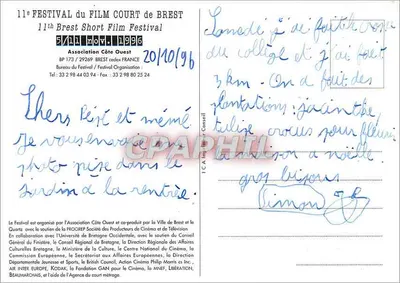 11e FESTIVAL du FILM COURT de BREST
11th Brest Short Film Festival
Association Côte Ouest
BP 173 / 29269 BREST cedex FRANCE
Bureau du Festival / Festival Organisation
Tel : 33 2 98 44 03 94 - Fax : 33 2 98 80 25 24
20/10/96
Chers Pépé et mémé
je vous envoie une
photo prise dans le
jardin à la rentrée.
Samedi j'ai fait le cross
du collège et j'ai fait
3 km. On a fait des
plantations : jacinthe,
tulipe, crocus pour fleurir
la maison à noël
gros bisous
Simon
CPAPHIL
Le Festival est organisé par l'Association Côte Ouest et co-produit par la Ville de Brest et le
Quartz avec le soutien de la PROCIREP Société des Producteurs de Cinéma et de Télévision
En collaboration avec l'Université de Bretagne Occidentale, avec le soutien du Conseil
Général du Finistère, le Conseil Régional de Bretagne, la Direction Régionale des Affaires
Culturelles Bretagne, le Ministère de la Culture, le Centre National du Cinéma, la
Commission Européenne, le Secrétariat aux Affaires Européennes, la Direction
Départementale Jeunesse et Sports, le British Council, Action Cinéma Philip Morris et Inc.,
AIR INTER EUROPE, KODAK, la Fondation GAN pour le Cinéma, la ANET, LIBÉRATION,
BEAUMARCHAIS, et l'aide de l'Agence du court métrage